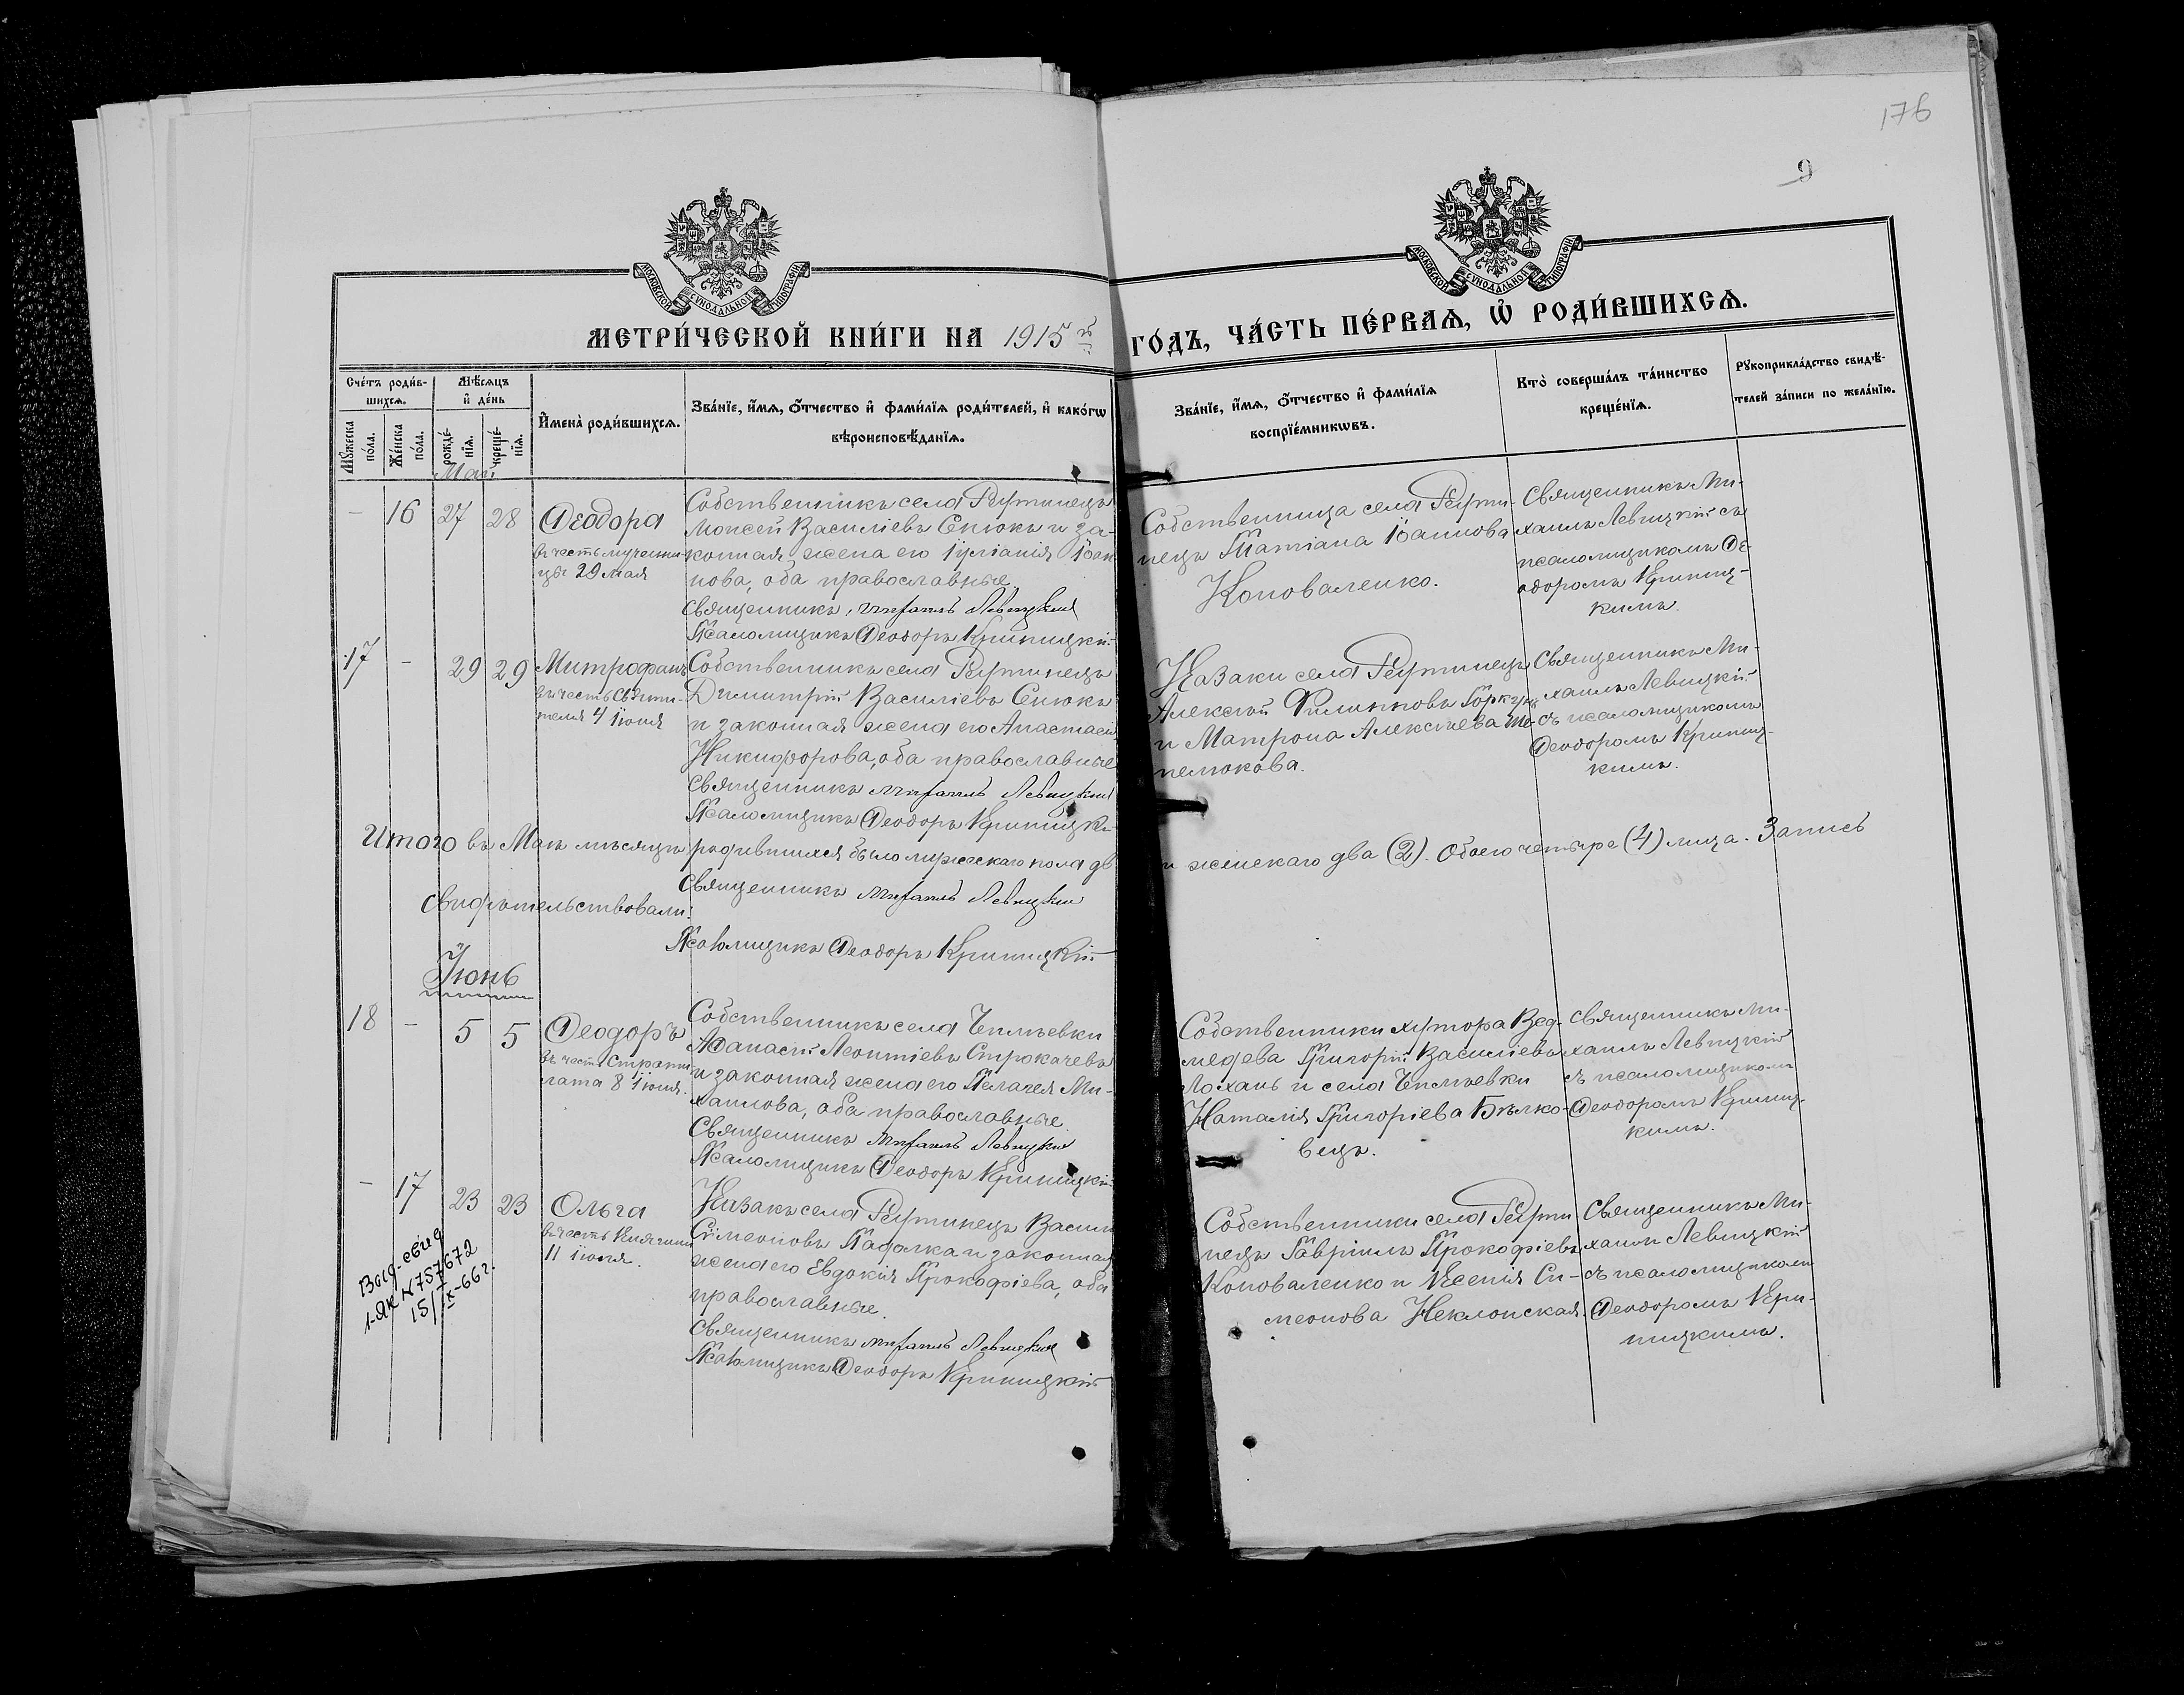 176
9
МОСКОВСКОЙ СѴНОДАЛЬНОЙ ТИПОГРАФІИ
МОСКОВСКОЙ СѴНОДАЛЬНОЙ ТИПОГРАФІИ
МЕТРИ́ЧЕСКОЙ КНИ́ГИ НА 1915 й
ГО́ДЪ, ЧА́СТЬ ПЕ́РВАѦ, Ѡ҆ РОДИ́ВШИХСѦ.
Сче́тъ роди́в-
шихсѧ.
Мѣ́сѧцъ
и҆ де́нь
Мꙋ́жеска
по́ла.
Же́нска
по́ла.
рожде́-
нїѧ.
креще́-
нїѧ.
И҆мена̀ роди́вшихсѧ.
Зва́нїе, и҆́мѧ, ѻ҆́тчество и҆ фами́лїѧ роди́телей, и҆ како́гѡ
вѣроисповѣ́данїѧ.
Зва́нїе, и҆́мѧ, ѻ҆́тчество и҆ фами́лїѧ
воспрїе́мникѡвъ.
Кто̀ соверша́лъ та́инство
креще́нїѧ.
Рꙋкоприкла́дство свидѣ́-
телей за́писи по жела́нїю.
Май
— 16 27 28
Ѳеодора
въ честь мучени-
цы 29 мая
Собственникъ села Реутинецъ
Моисей Василіевъ Сенюкъ и за-
конная жена его Іуліанія Іоан
нова, оба православные
Священникъ Михаилъ Левицкій
Псаломщикъ Ѳеодоръ Криницкій
Собственница села Реути-
нецъ Татіана Іоаннова
Коноваленко.
Священникъ Ми-
хаилъ Левицкій съ
псаломщикомъ Ѳе-
одоромъ Криниц-
кимъ.
17 — 29 29
Митрофанъ
въ честь Святи-
теля 4 Іюня
Собственникъ села Реутинецъ
Димитрій Василіевъ Сенюкъ
и законная жена его Анастасія
Никифорова, оба православные
Священникъ Михаилъ Левицкій
Псаломщикъ Ѳеодоръ Криницкі
Казаки села Реутинецъ
Алексѣй Филипповъ
и Матрона Алексѣева Ше-
пелюкова.
Священникъ Ми-
хаилъ Левицкій
съ псаломщикомъ
Ѳеодоромъ Криниц-
кимъ.
Итого въ Маѣ мѣсяцѣ родившихся было мужескаго пола дв
и женскаго два (2). Обоего четыре (4) лица. Запись
свидѣтельствовали:
Священникъ Михаилъ Левицкій
Псаломщикъ Ѳеодоръ Криницкій
Іюнь
18 — 5 5
Ѳеодоръ
въ честь Страти
лата 8 Іюня.
Собственникъ села Чеплѣевки
Аѳанасій Леонтіевъ Строкачевъ
и законная жена его Пелагея Ми-
хаилова, оба православные.
Священникъ Михаилъ Левицкій
Псаломщикъ Ѳеодоръ Криницкій
Собственники хутора Вед-
медева Григорій Василіевъ
Лохань и села Чеплѣевки
Наталія Григоріева Бѣлко-
вецъ.
Священникъ Ми-
хаилъ Левицкій
съ псаломщикомъ
Ѳеодоромъ Криниц-
кимъ.
— 17 23 23
Ольга
въ честь Княгини
11 Іюля.
Выд. свид
1-ЯК №757672
15/IX-66г.
Казакъ села Реутинецъ Васили
Сѵмеоновъ Падалка и законная
жена его Евдокія Прокофіева, оба
православные.
Священникъ Михаилъ Левицкій
Псаломщикъ Ѳеодоръ Криницкій
Собственники села Реути
нецъ Гавріилъ Прокофіевъ
Коноваленко и Ксенія Си-
меонова Неклонская.
Священникъ Ми-
хаилъ Левицкій
съ псаломщикомъ
Ѳеодоромъ Кри-
ницкимъ.